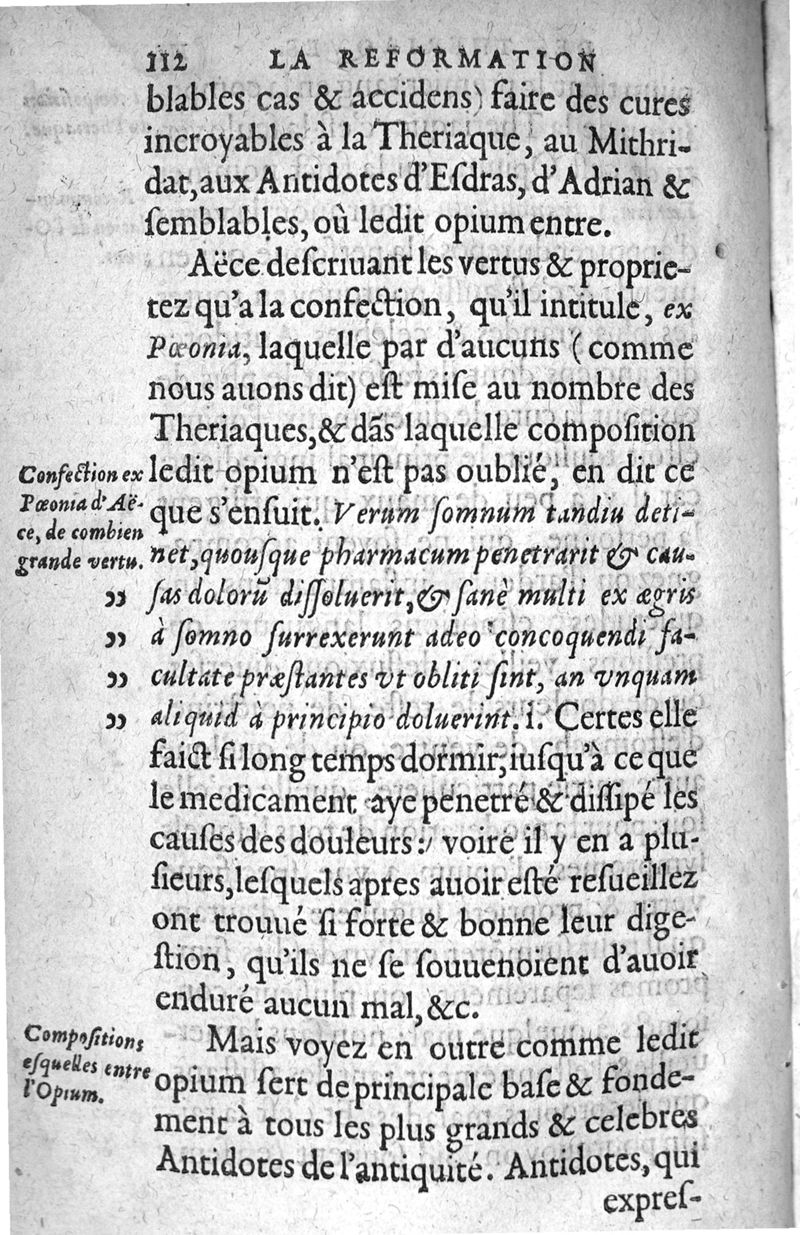 112 LA REFORMATION
blables cas & accidens) faire des cures
incroyables à la Theriaque, au Mithri-
dat, aux Antidotes d'Eſdras, d'Adrian &
ſemblables, où ledit opium entre.
Aëce deſcriuant les vertus & proprie-
tez qu'a la confection, qu'il intitule, ex
Pœonia, laquelle par d'aucuns (comme
nous auons dit) eſt miſe au nombre des
Theriaques, & dãs laquelle compoſition
ledit opium n'eſt pas oublié, en dit ce
que s'enſuit. Verum ſomnum tandiu deti-
net, quouſque pharmacum penetrarit & cau-
ſas dolorũ diſſoluerit, & ſanè multi ex ægris
à ſomno ſurrexerunt adeo concoquendi fa-
cultate præſtantes vt obliti ſint, an vnquam
aliquid à principio doluerint. i. Certes elle
faict ſi long temps dormir, iuſqu'à ce que
le medicament aye penetré & diſſipé les
cauſes des douleurs: voire il y en a plu-
ſieurs, leſquels apres auoir eſté reſueillez
ont trouué ſi forte & bonne leur dige-
ſtion, qu'ils ne ſe ſouuenoient d'auoir
enduré aucun mal, &c.
Mais voyez en outre comme ledit
opium ſert de principale baſe & fonde-
ment à tous les plus grands & celebres
Antidotes de l'antiquité. Antidotes, qui
expreſ-
Confection ex
Pœonia d'Aë-
ce, de combien
grande vertu.
„
„
„
„
Compoſitions
eſquelles entre
l'Opium.